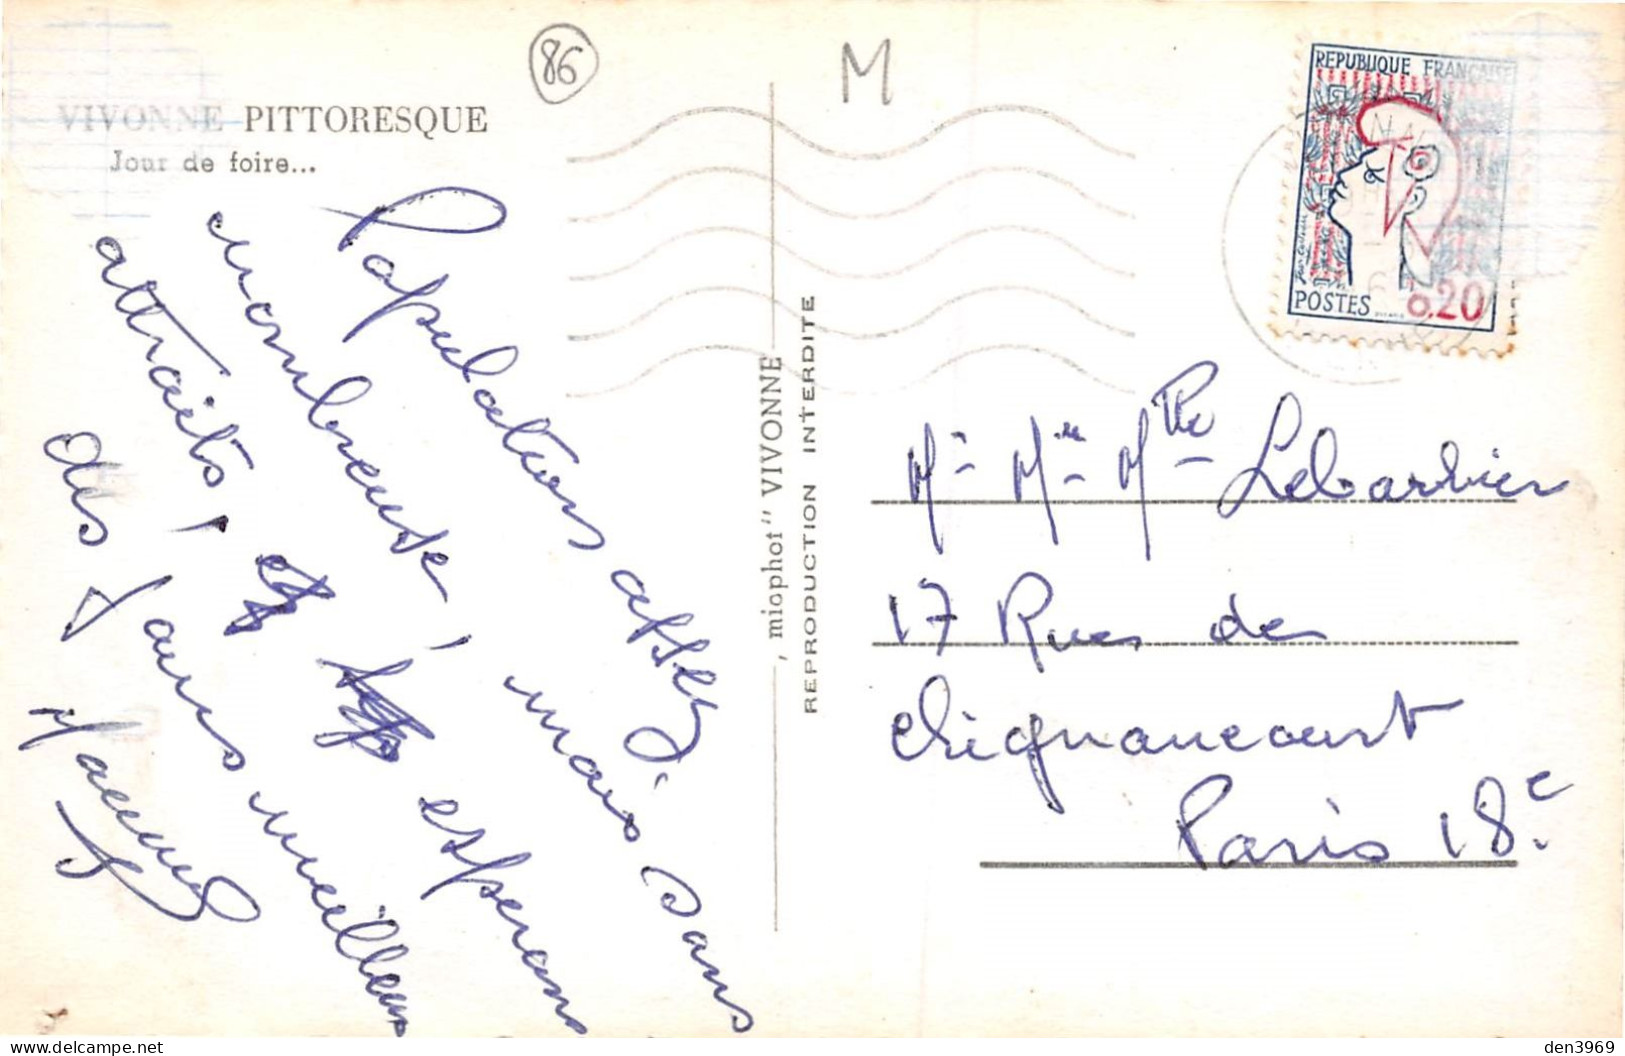 VIVONNE PITTORESQUE
Jour de foire...
86
M
REPUBLIQUE FRANÇAISE
POSTES
0.20
Populations assez
nombreuse, mais sans
attraits, et espérons
des jours meilleurs
„ miophot" VIVONNE
REPRODUCTION INTERDITE
Mr Mme Mlle Lebarbier
17 Rue de
Clignancourt
Paris 18e
den3969